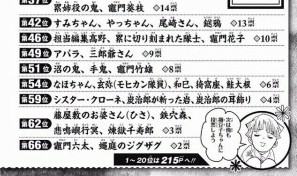 累姉役の鬼、竈門葵枝 ◇14票
第42位 すみちゃん、やっちゃん、尾崎さん、鎹鴉 ◇13票
第46位 担当編集高野、累に切り刻まれた隊士、竈門花子 ◇10票
第49位 アバラ、三郎爺さん ◇9票
第51位 沼の鬼、手鬼、竈門竹雄 ◇8票
第54位 なほちゃん、玄弥(モヒカン隊員)、和巳、猗窩座、鮭大根 ◇6票
第59位 シスター・クローネ、炭治郎が斬った岩、炭治郎の耳飾り ◇4票
第62位 藤屋敷のお婆さん(ひさ)、鉄穴森、
悲鳴嶼行冥、煉獄千寿郎 ◇3票
第66位 竈門六太、縄庭のジグザグ ◇2票
1〜20位は215Pへ!!